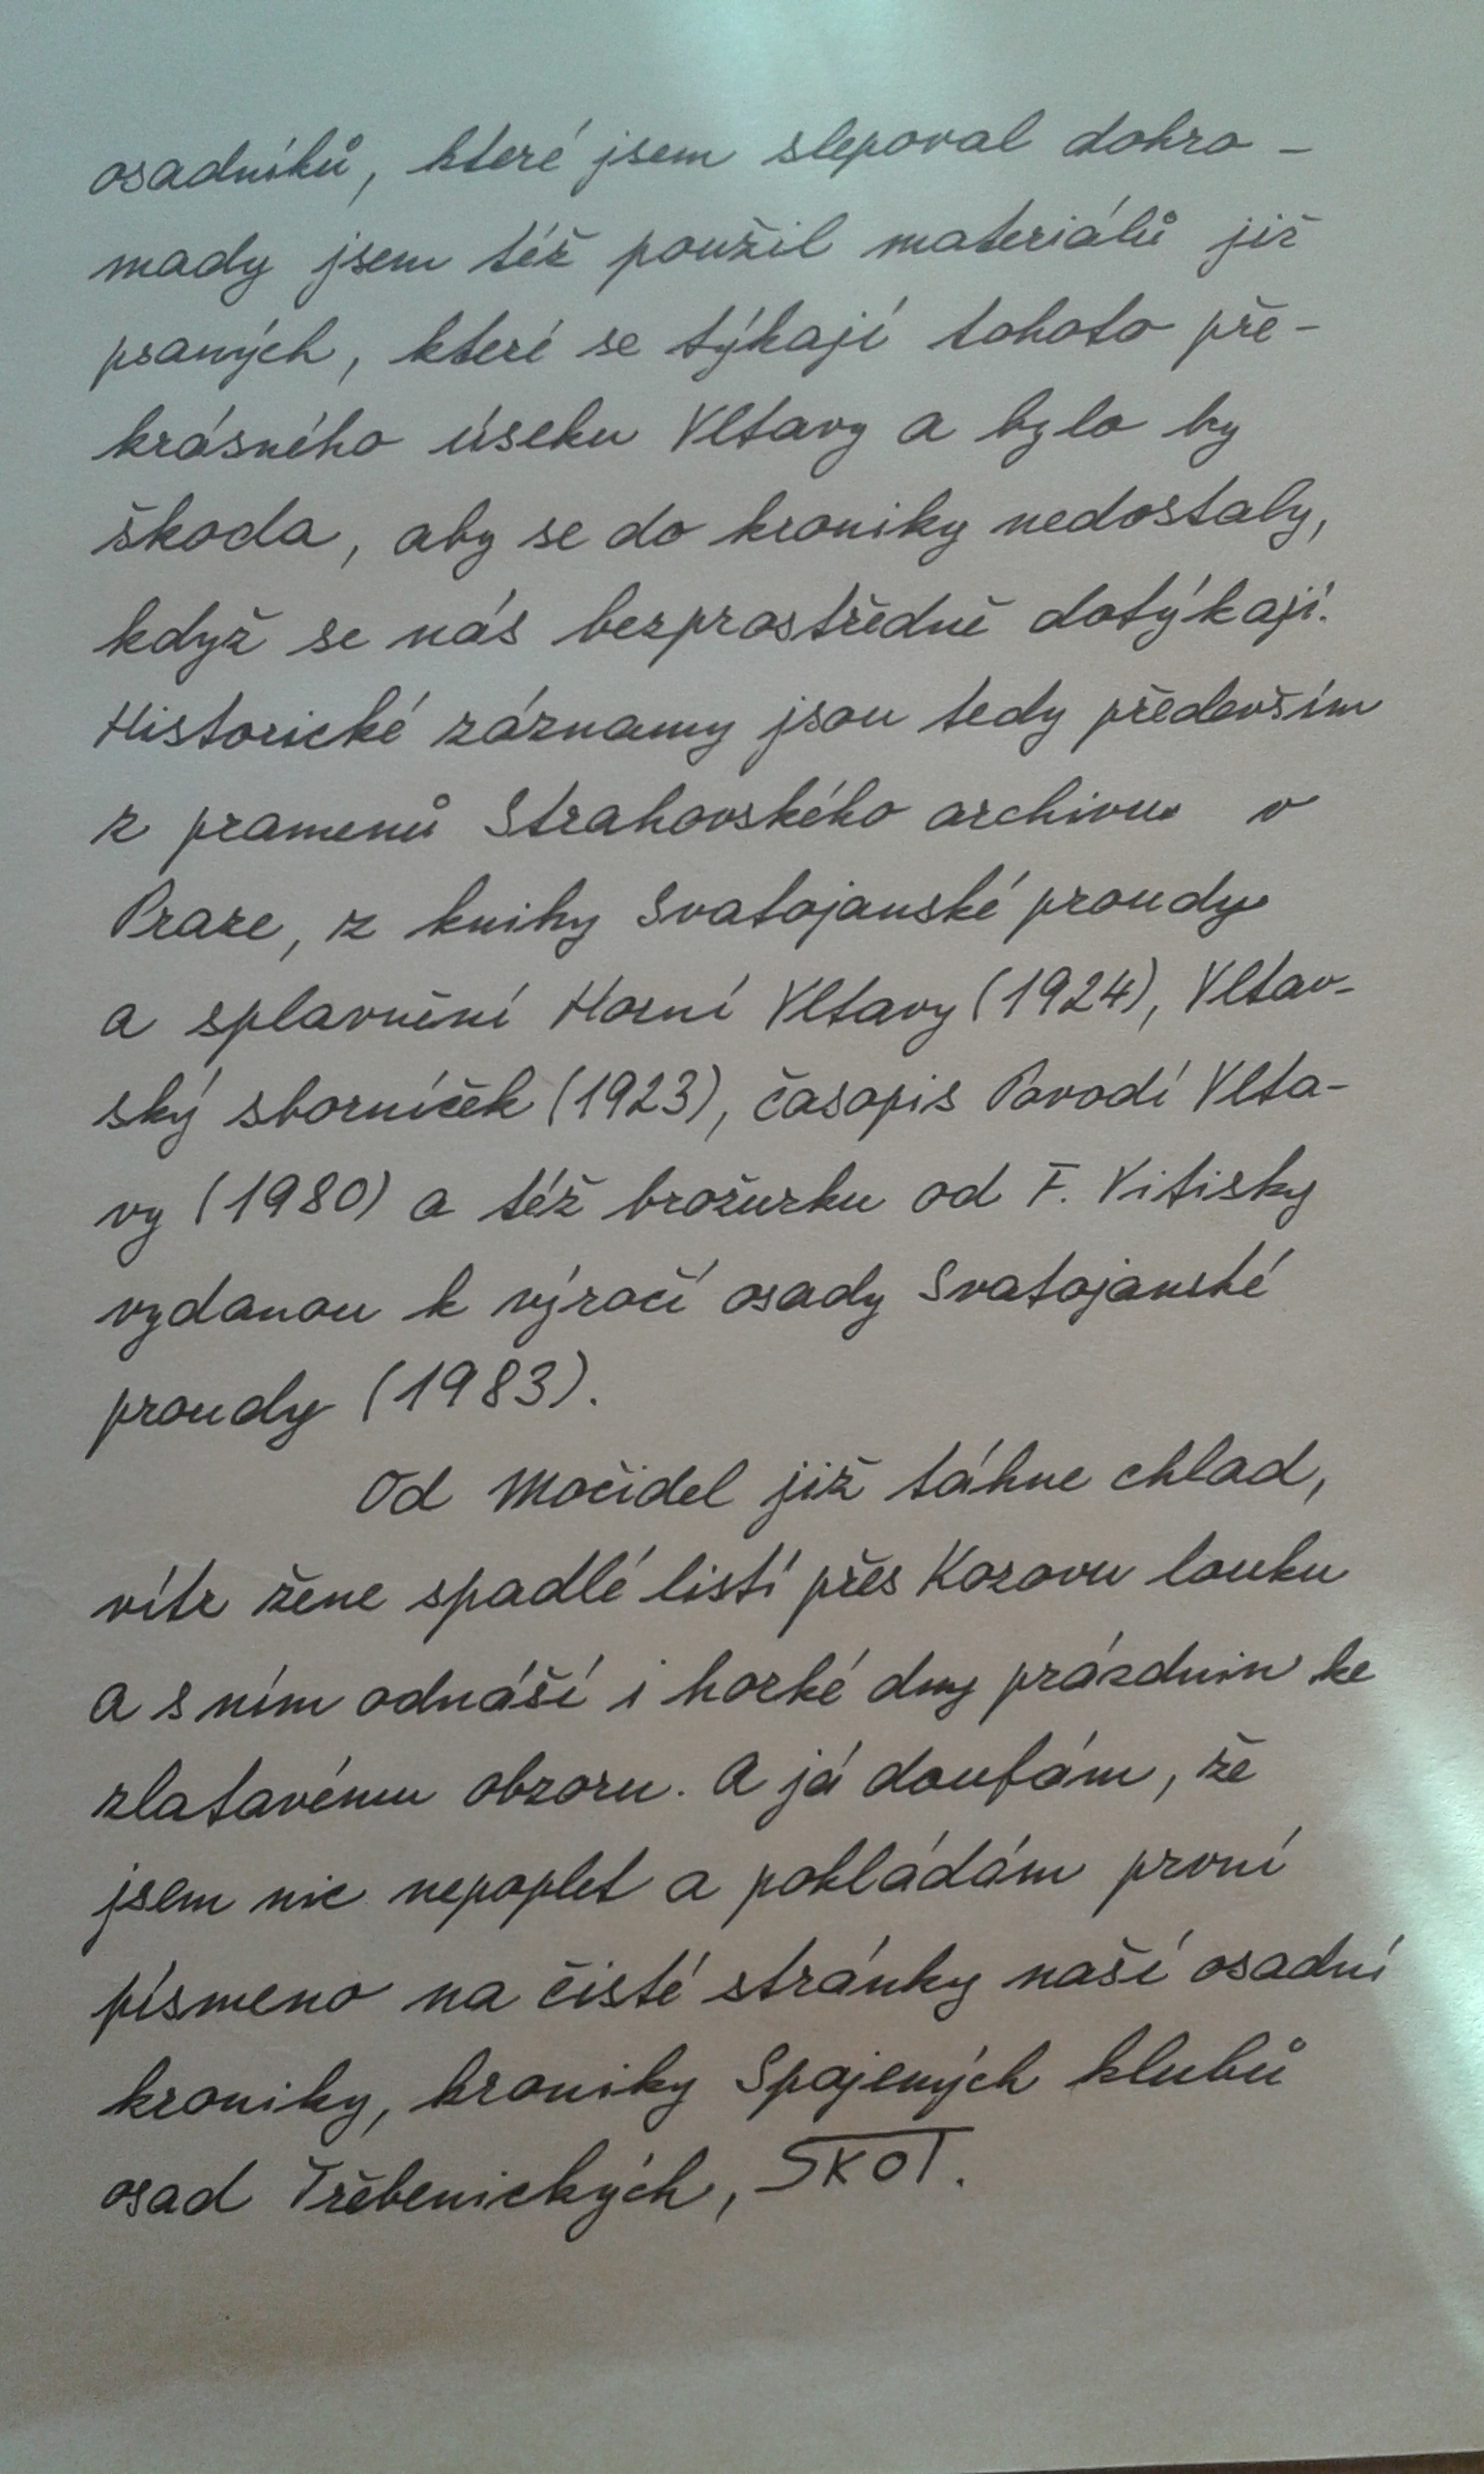 osadníků, které jsem slepoval dohro-
mady jsem též použil materiálů již
psaných, které se týkají tohoto pře-
krásného úseku Vltavy a bylo by
škoda, aby se do kroniky nedostaly,
když se nás bezprostředně dotýkají.
Historické záznamy jsou tedy především
z pramenů Strahovského archivu v
Praze, z knihy Svatojanské proudy
a splavnění Horní Vltavy (1924), Vltav-
ský sborníček (1923), časopis Povodí Vlta-
vy (1980) a též brožurku od F. Vitisky
vydanou k výročí osady Svatojanské
proudy (1983).
Od Močidel již táhne chlad,
vítr žene spadlé listí přes Kozovu louku
a s ním odnáší i horké dny prázdnin ke
zlatavému obzoru. A já doufám, že
jsem nic nepoplet a pokládám první
písmeno na čisté stránky naší osadní
kroniky, kroniky Spojených klubů
osad Třebenických, SKOT.